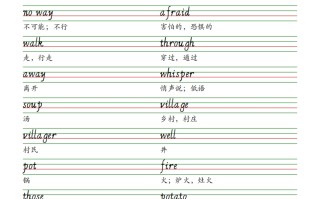 no way afraid
不可能；不行 害怕的，恐惧的
walk through
走，行走 穿过，通过
away whisper
离开 悄声说；低语
soup village
汤 乡村，村庄
villager well
村民 井
pot fire
锅 火；炉火，灶火
those potato